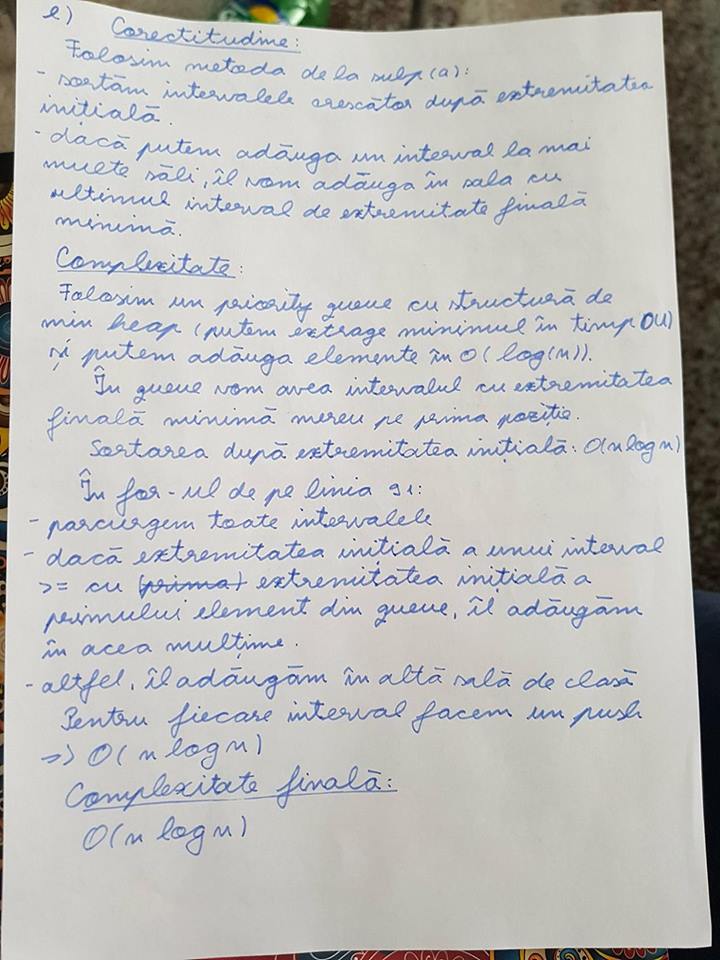 e) Corectitudine:
Folosim metoda de la subp(a):
- sortăm intervalele crescător după extremitatea
inițială.
- dacă putem adăuga un interval la mai
multe săli, îl vom adăuga în sala cu
ultimul interval de extremitate finală
minimă.
Complexitate:
Folosim un priority queue cu structură de
min heap (putem extrage minimul în timp O(1)
și putem adăuga elemente în O(log(n)).
În queue vom avea intervalul cu extremitatea
finală minimă mereu pe prima poziție.
Sortarea după extremitatea inițială: O(n log n)
În for-ul de pe linia 91:
- parcurgem toate intervalele
- dacă extremitatea inițială a unui interval
>= cu (prima) extremitatea inițială a
primului element din queue, îl adăugăm
în acea mulțime.
- altfel, îl adăugăm în altă sală de clasă
Pentru fiecare interval facem un push
=> O(n log n)
Complexitate finală:
O(n log n)